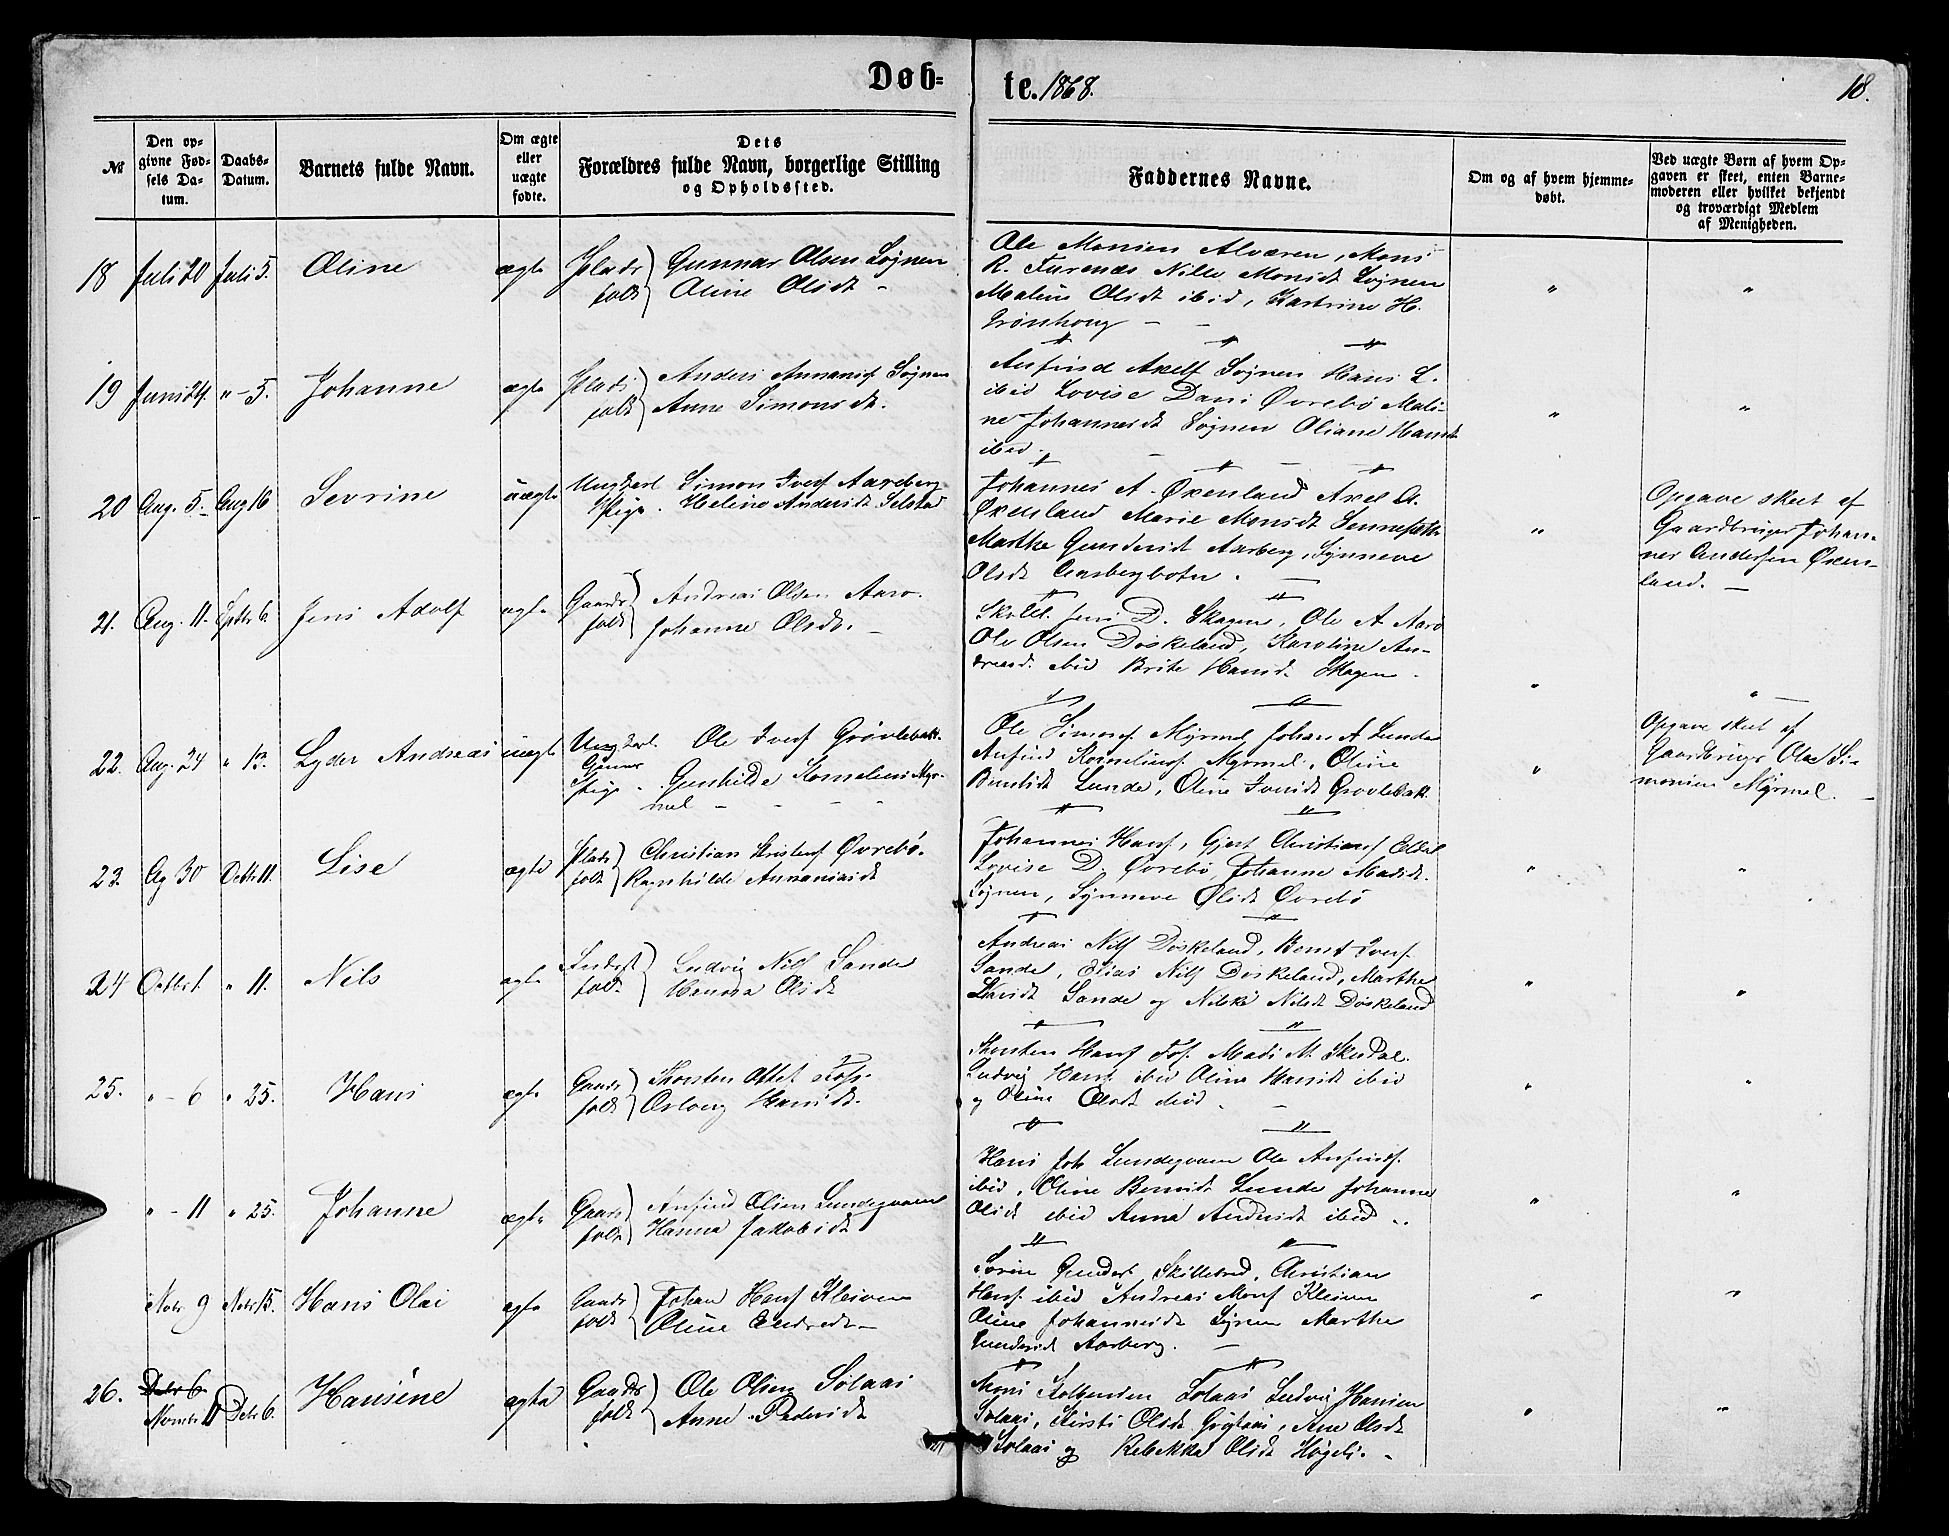 Døb-
te. 1868.
18.
№
Den op-
givne Fød-
sels Da-
tum.
Daabs-
Datum.
Barnets fulde Navn.
Om ægte
eller
uægte
fødte.
Dets
Forældres fulde Navn, borgerlige Stilling
og Opholdssted.
Faddernes Navne.
Om og af hvem hjemme-
døbt.
Ved uægte Børn af hvem Op-
gaven er skeet, enten Barne-
moderen eller hvilket bekjendt
og troværdigt Medlem
af Menigheden.
18 Juli 5. Oline ægte Plads folk Gunnar Olsen Søgnen
Oline Olsdt
Ole Monsen Alværen, Mons
R. Furenæs Nille Monsdt Søgnen
Maline Olsdt ibid, Kartrine H.
Grønhoug
19 Juni 24. " - 5. Johanne ægte Plads folk Anders Ananiasf Søgnen
Anne Simonsdt.
Anfind Axelf Søgnen Hans L.
ibid Lovise Dani Øvrebø Mali-
ne Johannesdt Søgnen Oliane Hansdt
ibid.
20 Aug. 5. Aug 16 Sevrine uægte Ungkarl Simon Iverf Aareberg
Pige. Heline Andersdt Selstad
Johannes A. Øxenland Axel A.
Øxenland Marie Monsdt
Marthe Gundersdt Aarberg, Synneve
Olsdt Aasbergbotn.
Opgave skeet af
Gaardbruger Johan-
nes Andersen Øxen-
land.
21. Aug. 11. Septbr 6. Jens Adolf ægte Gaards folk Andreas Olsen Aarø.
Johanne Olsdt.
Skolel. Jens D. Skagen, Ole A Aarø
Ole Olsen Døskeland, Karoline An-
dreasd. ibid Brite Hansdt Skagen
22. Aug. 24 " 13. Lyder Andreas uægte Ungkarl Ole Iverf Grøvlebak.
Pige. Gunhilde Kornelius Myr-
mel
Ole Simonsf Myrmel Johan A Lunde
Anfind Korneliusf Myrmel, Oline
Berntsdt Lunde, Oline Iversdt Grøvlebak.
Opgave skeet af
Gaardbruger Ole Si-
monsen Myrmel.
23. Ag 30 11. Lise ægte Plads folk Christian Øvrebø.
Ragnhilde Ananiasdt
Johannes Hansf, Gjert Christiansf
Lovise D. Øvrebø, Johanne Madsdt.
Søgnen, Synneve Olsdt Øvrebø
24 Octbr 1. " 11. Nils ægte Inderst folk Ludvig Nilsf Sande
Hanna Olsdt
Andreas Nilsf Døskeland, Bernt Iversf.
Sande, Elias Nilsf Døskeland, Marthe
Sande og Nilsdt Døskeland
25. " - 6 " 25. Hans ægte Gaards folk Thorsten Ottef Fos.
Hansdt.
Thorsten Hansf Fos. Mads M. Skerdal.
Ludvig Hansf ibid Oline Hansdt ibid
og Oline Olsdt ibid.
" - 11 " 25. Johanne ægte Gaards folk Anfind Olsen Lundegaarn
Hanna Jakobsdt
Hans Joh Lundegaarn Ole Anfindsf.
ibid, Oline Berntsdt Lunde Johanne
Olsdt ibid Anna Andersdt ibid
Novbr 9 Novbr 15. Hans Olai ægte Gaards folk Johan Hansf Kleiven
Oline Endresdt
Søren Gundersf Skillebred, Christian
Hansf. ibid Andreas Monsf Kleiven
Oline Johannesdt Søgnen Marthe
Gundersdt Aarberg.
26. Decbr 6. Novembr 11 Decbr 6. Hansine ægte Gaards folk Ole Olsen Solaas
Anne Pedersdt
Mons Solaas Ludvig Hansen
Solaas, Kirsti Olsdt, Ane Olsdt
Solaas og Rebekka Olsdt Høgeli.